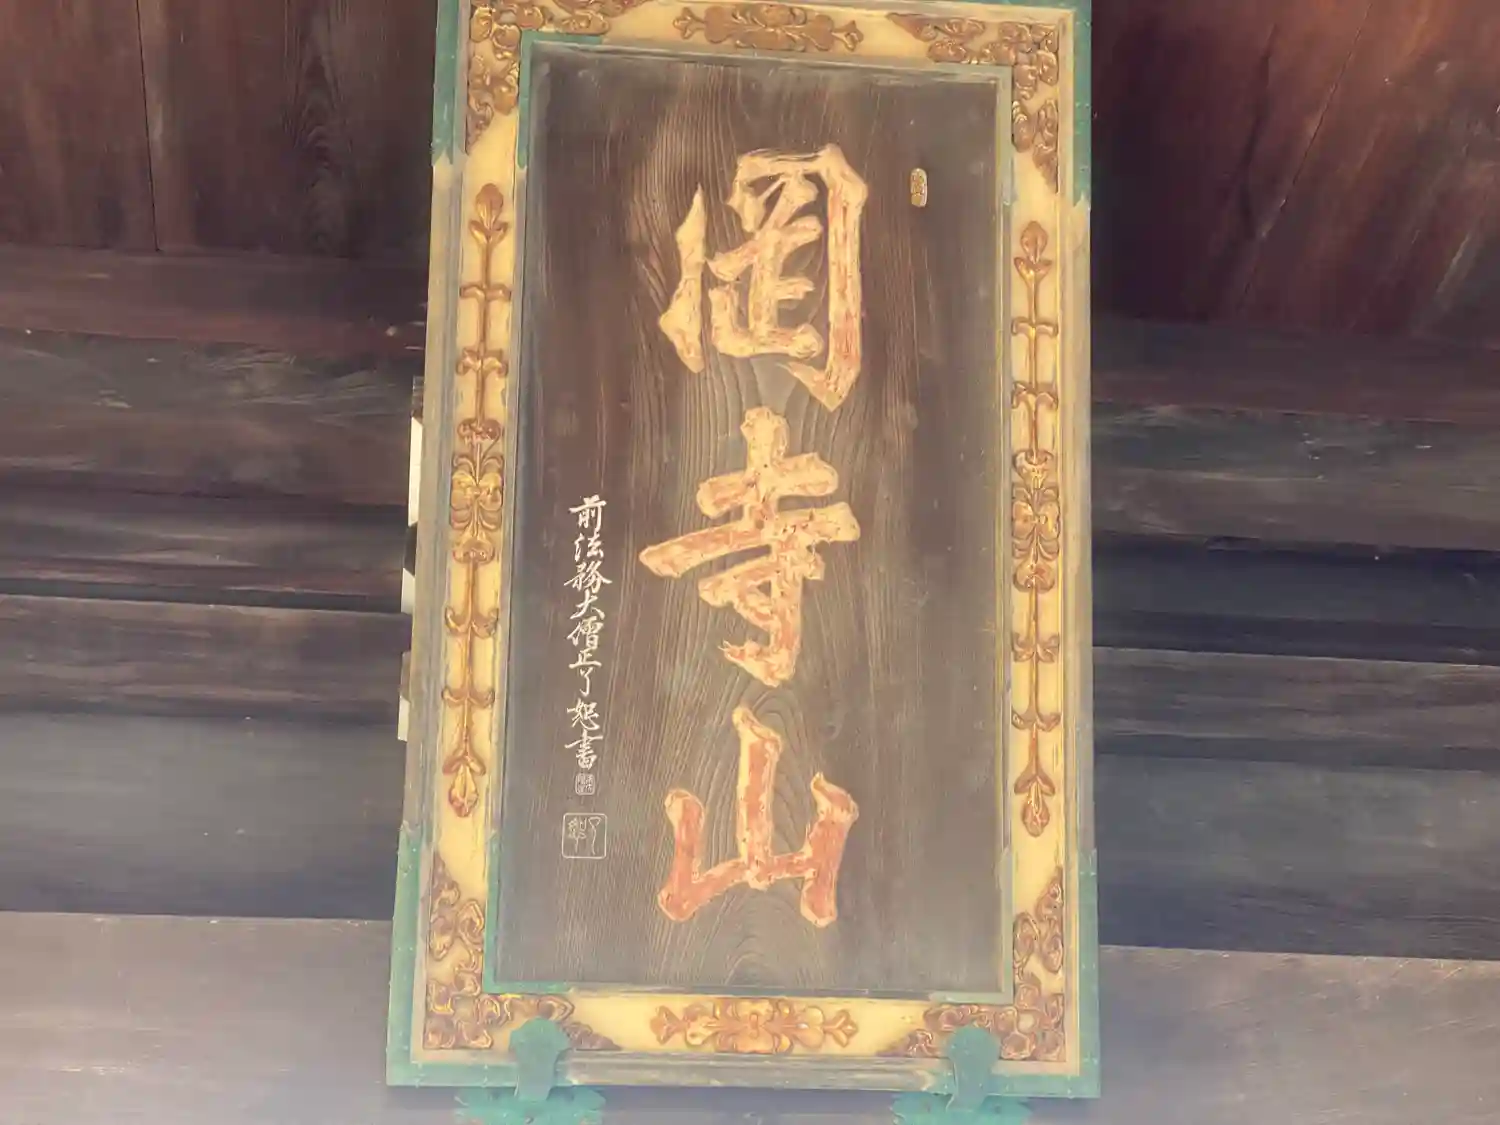 岡寺山
前法務大僧正了恕書
了恕